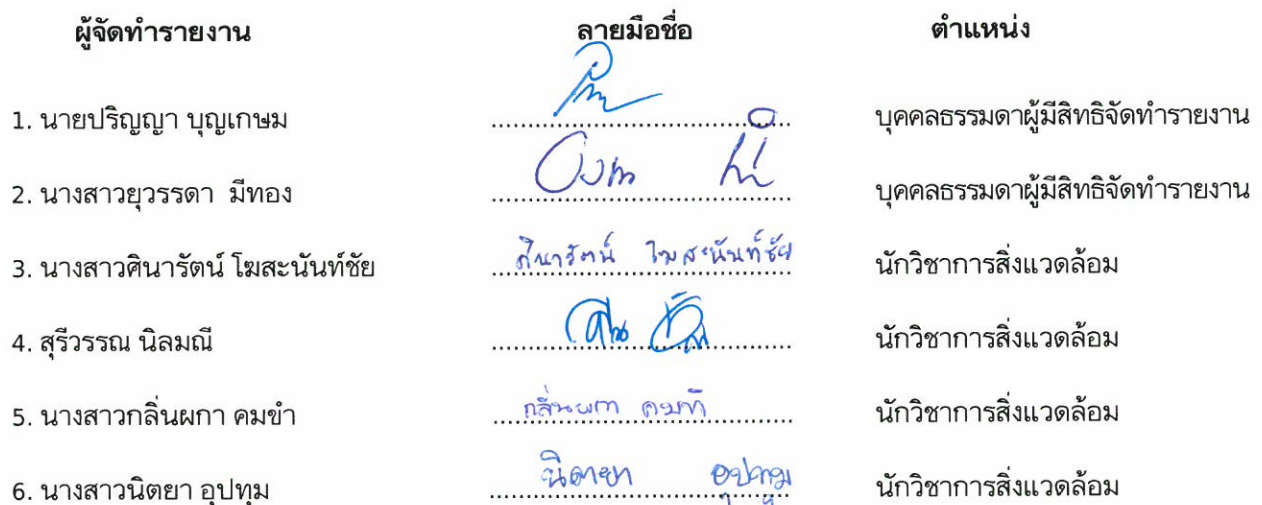 ผู้จัดทำรายงาน ลายมือชื่อ ตำแหน่ง
1. นายปริญญา บุญเกษม บุคคลธรรมดาผู้มีสิทธิจัดทำรายงาน
2. นางสาวยุวรรดา มีทอง บุคคลธรรมดาผู้มีสิทธิจัดทำรายงาน
3. นางสาวศินารัตน์ โฆสะนันท์ชัย ศินารัตน์ โฆสะนันท์ชัย นักวิชาการสิ่งแวดล้อม
4. สุรีวรรณ นิลมณี นักวิชาการสิ่งแวดล้อม
5. นางสาวกลิ่นผกา คมขำ กลิ่นผกา คมขำ นักวิชาการสิ่งแวดล้อม
6. นางสาวนิตยา อุปทุม นิตยา อุปทุม นักวิชาการสิ่งแวดล้อม